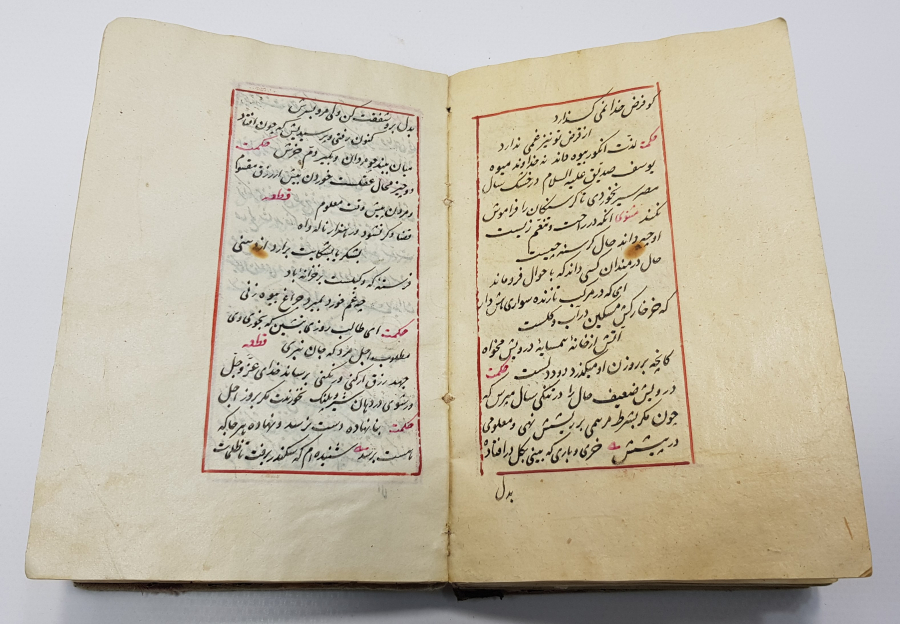 کو فرض خدا نمی گذارد
از قرض تو نیز غمی ندارد
حکمت لذت انگور بیوه داند نه خداوند میوه
یوسف صدیق علیه السلام در خشک سال
مصر سیر نخوردی تا گرسنگان را فراموش
نکند مثنوی آنکه در راحت و تنعم زیست
او چه داند حال گرسنه چیست
حال درمندان کسی داند که باحوال فروماند
ای که در مرکب تازنده سواری هش دار
که خر خارکش مسکین در آب و گلست
آتش از خانه همسایه درویش مخواه
کانچه بر روزن او میگذرد دود دلست حکمت
درویش ضعیف حال را در تنگی سال مپرس که
چون مکر بشرط مرهمی بر ریشش نهی و معلومی
در پیشش خری و باری که بینی بگل در افتاده
بدل
بدل برو شفقت کن ولی مرو بسرش
کنون که رفتی و پرسیدیش که چون افتاد
میان ببند چو مردان و بگیر دم خرش حکمت
دو چیز محال عقلست خوردن بیش از رزق مقسوم
و مردن پیش وقت معلوم قطعه
قضا دگر نشود ور هزار ناله و آه
بشکر یا بشکایت برآرد از دهنی
فرشته که وکیلست بر خزانه باد
چه غم خورد بمیرد چراغ بیوه زنی
حکمت ای طالب روزی بنشین که بخوری وی
مطلوب اجل مرو که جان نبری قطعه
جهد رزق ار کنی ور نکنی برساند خدای عز و جل
ور شوی در دهان شیر و پلنگ نخورندت مکر بروز اجل
حکمت بنانهاده دست نرسد و نهاده هر جا که
هست برسد شنیده ام که سکندر برفت تا ظلمات